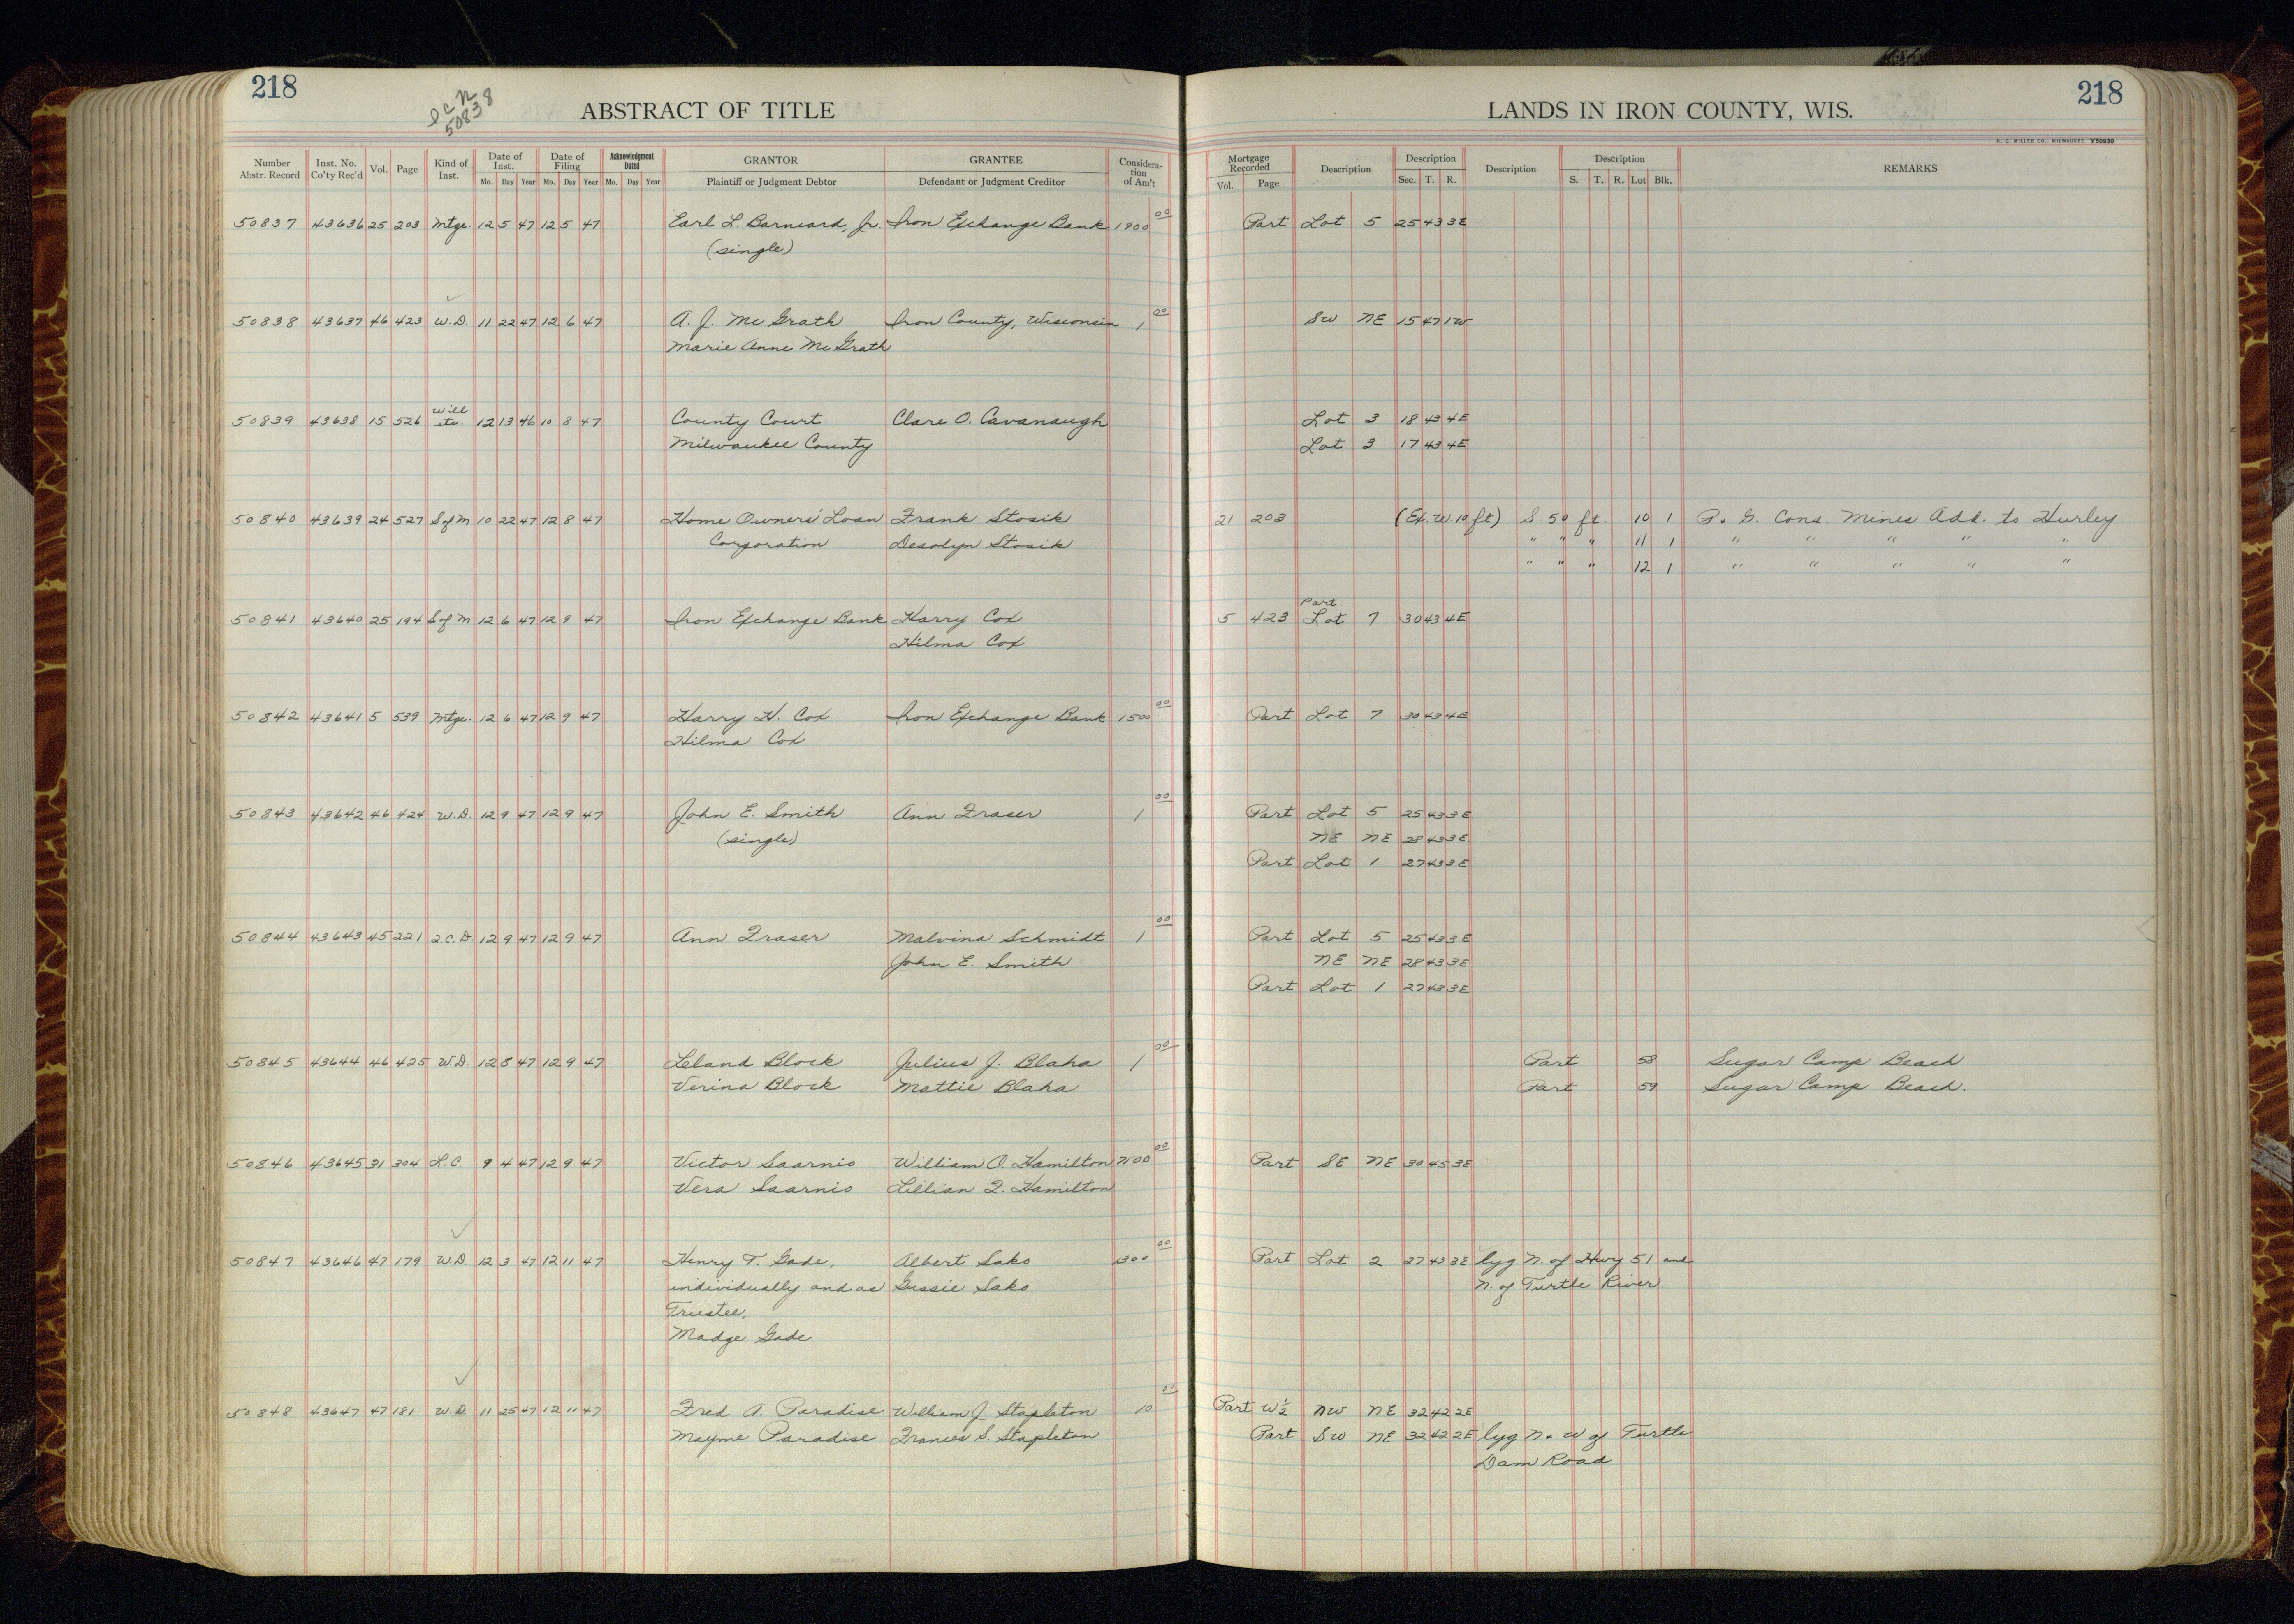 218
I C N
50838
ABSTRACT OF TITLE
LANDS IN IRON COUNTY, WIS.
218
H. C. MILLER CO., MILWAUKEE Y50930
Number Abstr. Record Inst. No. Co'ty Rec'd Vol. Page Kind of Inst. Date of Inst. Date of Filing Acknowledgment Dated GRANTOR GRANTEE Considera-tion of Am't Mortgage Recorded Description Description Description Description REMARKS
Mo. Day Year Mo. Day Year Mo. Day Year Plaintiff or Judgment Debtor Defendant or Judgment Creditor Vol. Page Sec. T. R. S. T. R. Lot Blk.
50837 43636 25 203 Mtge. 12 5 47 12 5 47 Earl L. Barneard, Jr. Iron Exchange Bank 1900 00 Part Lot 5 25 43 3E
(single)
50838 43637 46 423 W.D. 11 22 47 12 6 47 A. J. McGrath Iron County, Wisconsin 1 00 SW NE 15 47 1W
Marie Anne McGrath
50839 43638 15 526 Will etc. 12 13 46 10 8 47 County Court Clare O. Cavanaugh Lot 3 18 43 4E
Milwaukee County Lot 3 17 43 4E
50840 43639 24 527 S of M 10 22 47 12 8 47 Home Owners' Loan Frank Stosik 21 203 (Ex. W. 10 ft) S. 50 ft. 10 1 P. & G. Cons. Mines Add. to Hurley
Corporation Desolyn Stosik " " " 11 1 " " " " "
" " " 12 1 " " " " "
50841 43640 25 194 S of M 12 6 47 12 9 47 Iron Exchange Bank Harry Cox 5 423 Part: Lot 7 30 43 4E
Hilma Cox
50842 43641 5 539 Mtge. 12 6 47 12 9 47 Harry H. Cox Iron Exchange Bank 1500 00 Part Lot 7 30 43 4E
Hilma Cox
50843 43642 46 424 W.D. 12 9 47 12 9 47 John E. Smith Ann Fraser 1 00 Part Lot 5 25 43 3E
(single) NE NE 28 43 3E
Part Lot 1 27 43 3E
50844 43643 45 221 Q.C.D. 12 9 47 12 9 47 Ann Fraser Malvina Schmidt 1 00 Part Lot 5 25 43 3E
John E. Smith NE NE 28 43 3E
Part Lot 1 27 43 3E
50845 43644 46 425 W.D. 12 8 47 12 9 47 Leland Block Julius J. Blaha 1 00 Part 58 Sugar Camp Beach
Verina Block Mattie Blaha Part 59 Sugar Camp Beach.
50846 43645 31 304 L.C. 9 4 47 12 9 47 Victor Saarnio William O. Hamilton 7100 00 Part SE NE 30 45 3E
Vera Saarnio Lillian F. Hamilton
50847 43646 47 179 W.D. 12 3 47 12 11 47 Henry T. Gade, Albert Saks 1300 00 Part Lot 2 27 43 3E lyg N. of Hwy 51 and
individually and as Gussie Saks N. of Turtle River.
Trustee,
Madge Gade
50848 43647 47 181 W.D. 11 25 47 12 11 47 Fred A. Paradise William J. Stapleton 10 00 Part W½ NW NE 32 42 2E
Mayme Paradise Frances S. Stapleton Part SW NE 32 42 2E lyg N. & W of Turtle
Dam Road